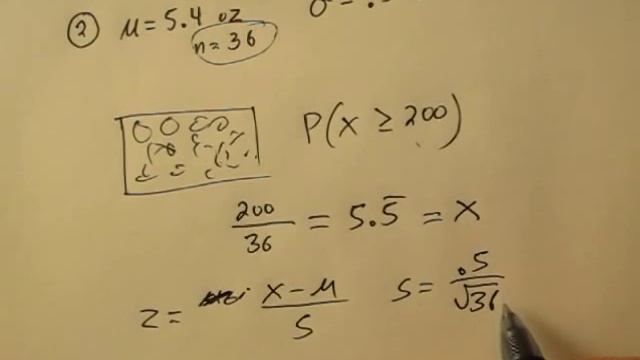 ② μ = 5.4 oz σ = .
n = 36
P(x ≥ 200)
200/36 = 5.5̅ = x
z = x - μ / s s = .5 / √36